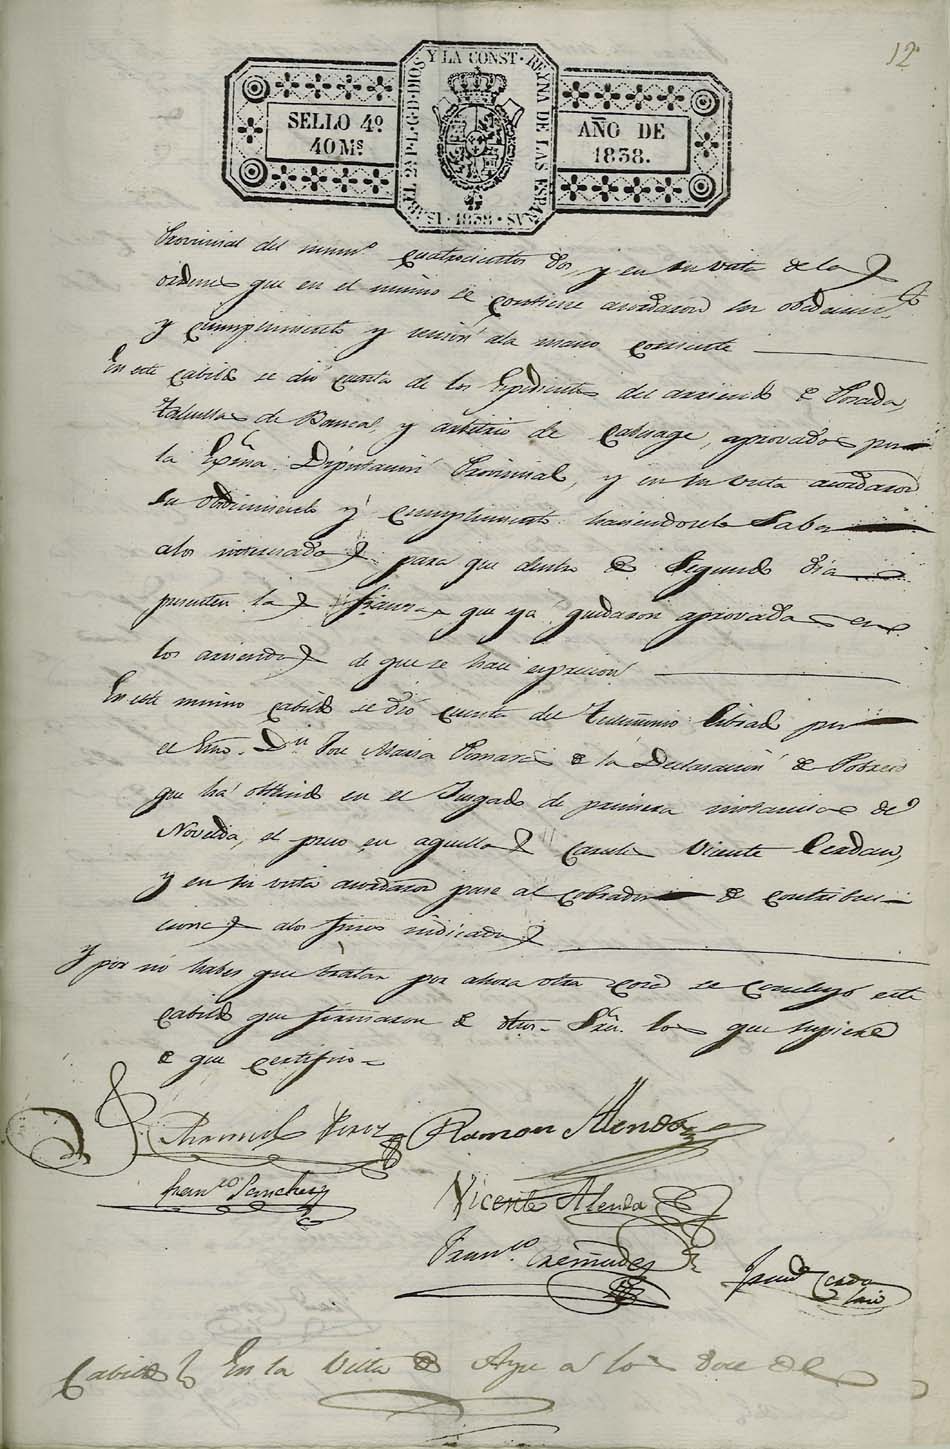 12
SELLO 4º
40 Ms
ISABEL 2ª P. L. G. D. DIOS Y LA CONST. REYNA DE LAS ESPAÑAS · 1838 ·
AÑO DE
1838.
Provincial del num.º cuatrocientos dos y en su vista de las
ordenes que en el mismo se contiene acordaron su obedecim.to
y cumplimiento y union ala mano corriente
En este cabildo se dió cuenta de los Espedientes del arriendo de Posada,
tahullas de Bancal, y arbitrio de Cahuage, aprovados por
la Exma. Diputacion Provincial, y en su vista acordaron
su obedecimiento y cumplimiento haciendoselo Saber
alos interesados para que dentro de Segundo dia
presenten las fianzas que ya quedaron aprovadas en
los arriendos de que se hace espresion
En este mismo cabildo se dió cuenta del Testimonio librado por
el Esno. Dn. Jose Maria Pomares de la Declaracion de Pobreza
que há obtenido en el Juzgado de primera instancia de
Novelda, el preso en aquellas Carceles Vicente Cerdan,
y en su vista acordaron pase al cobrador de contribu-
ciones alos fines indicados
y por no haber que tratar por ahora otra cosa se concluyó este
cabildo que firmaron de otros Sres. los que supieron
de que certifico
Manuel Perez Ramon Alenda
Fran.co Sanchez
Vicente Alenda
Fran.co Cremades
Cabildo En la Villa de Aspe á los doce de